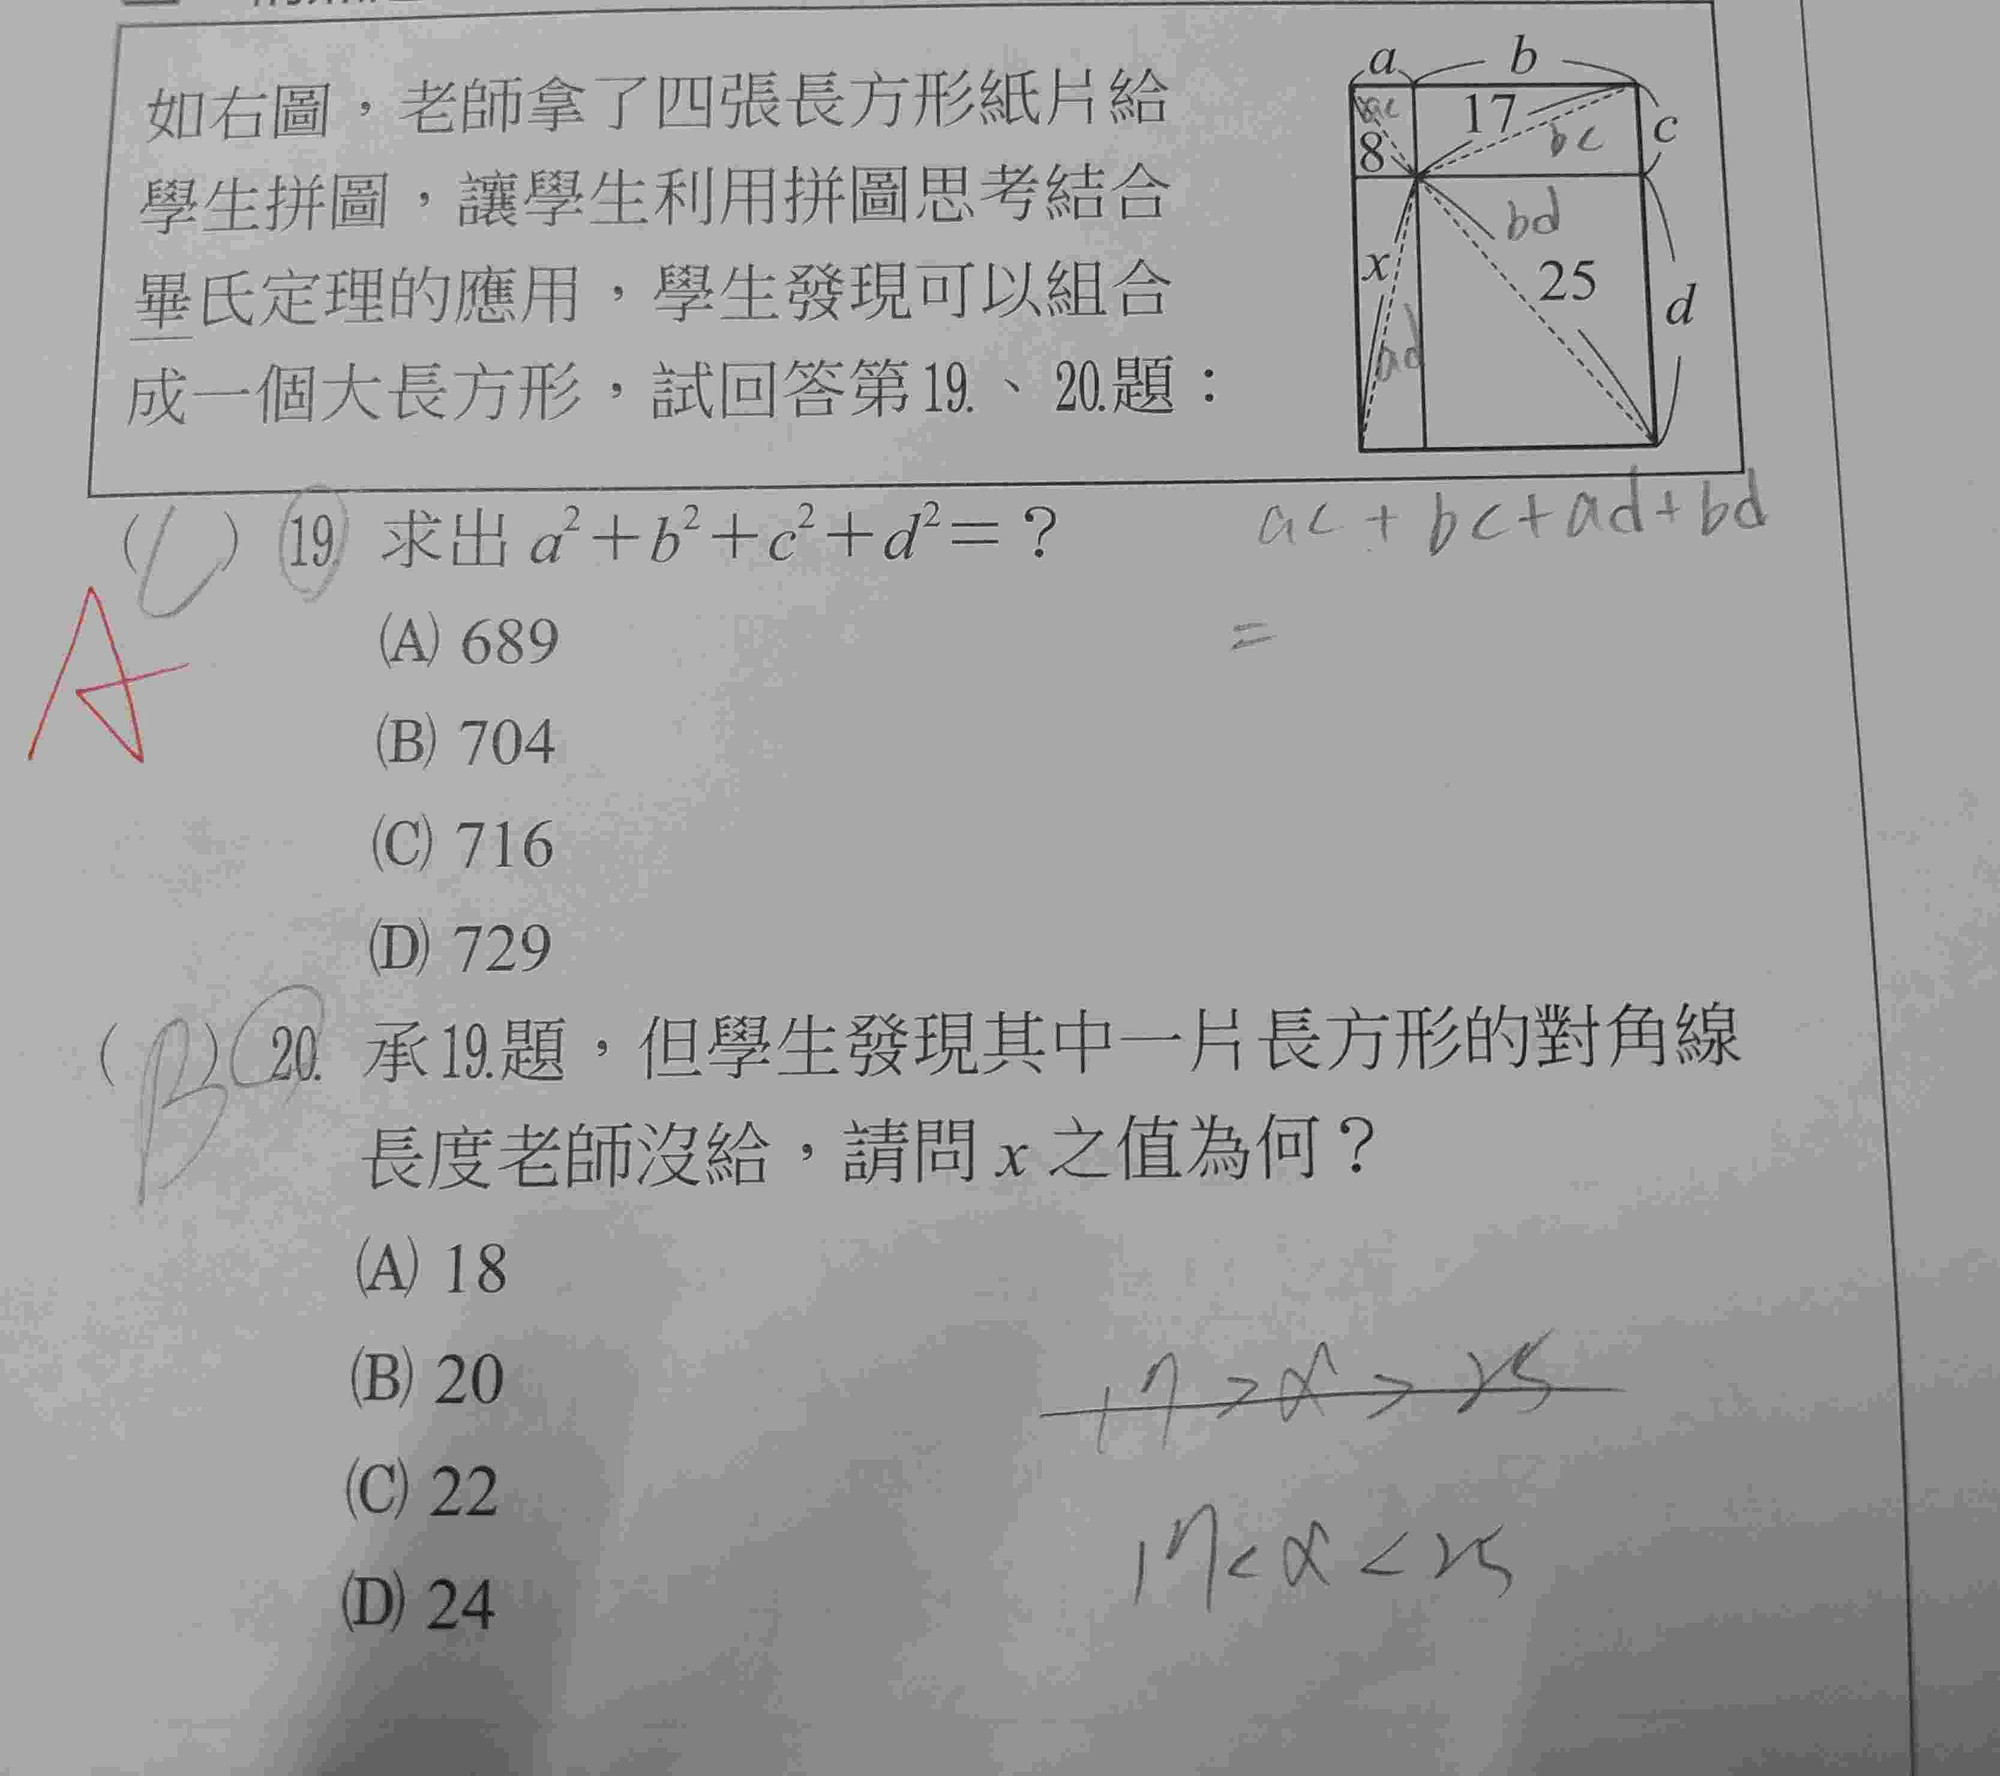 如右圖，老師拿了四張長方形紙片給
學生拼圖，讓學生利用拼圖思考結合
畢氏定理的應用，學生發現可以組合
成一個大長方形，試回答第19.、20.題：
a b
17 c
8 bc
bd
x 25 d
ad
ac + bc + ad + bd
=
(C) 19. 求出 a²+b²+c²+d²=？
A
(A) 689
(B) 704
(C) 716
(D) 729
(B) 20. 承19.題，但學生發現其中一片長方形的對角線
長度老師沒給，請問 x 之值為何？
(A) 18
(B) 20
(C) 22
(D) 24
17 > x > 25
17 < x < 25